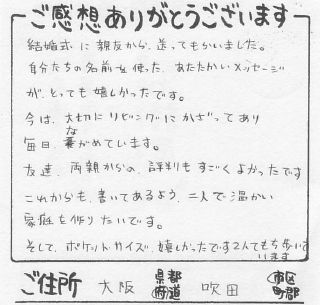 ご感想ありがとうございます
結婚式に親友から、送ってもらいました。
自分たちの名前を使った、あたたかいメッセージ
が、とっても嬉しかったです。
今は、大切にリビングにかざってあり
毎日、ながめています。
友達、両親からの、評判もすごくよかったです
これからも、書いてあるよう、二人で温かい
家庭を作りたいです。
そして、ポケットサイズ、嬉しかったです2人でもち歩いて
います
ご住所 大阪 都道府県 吹田 市区町郡